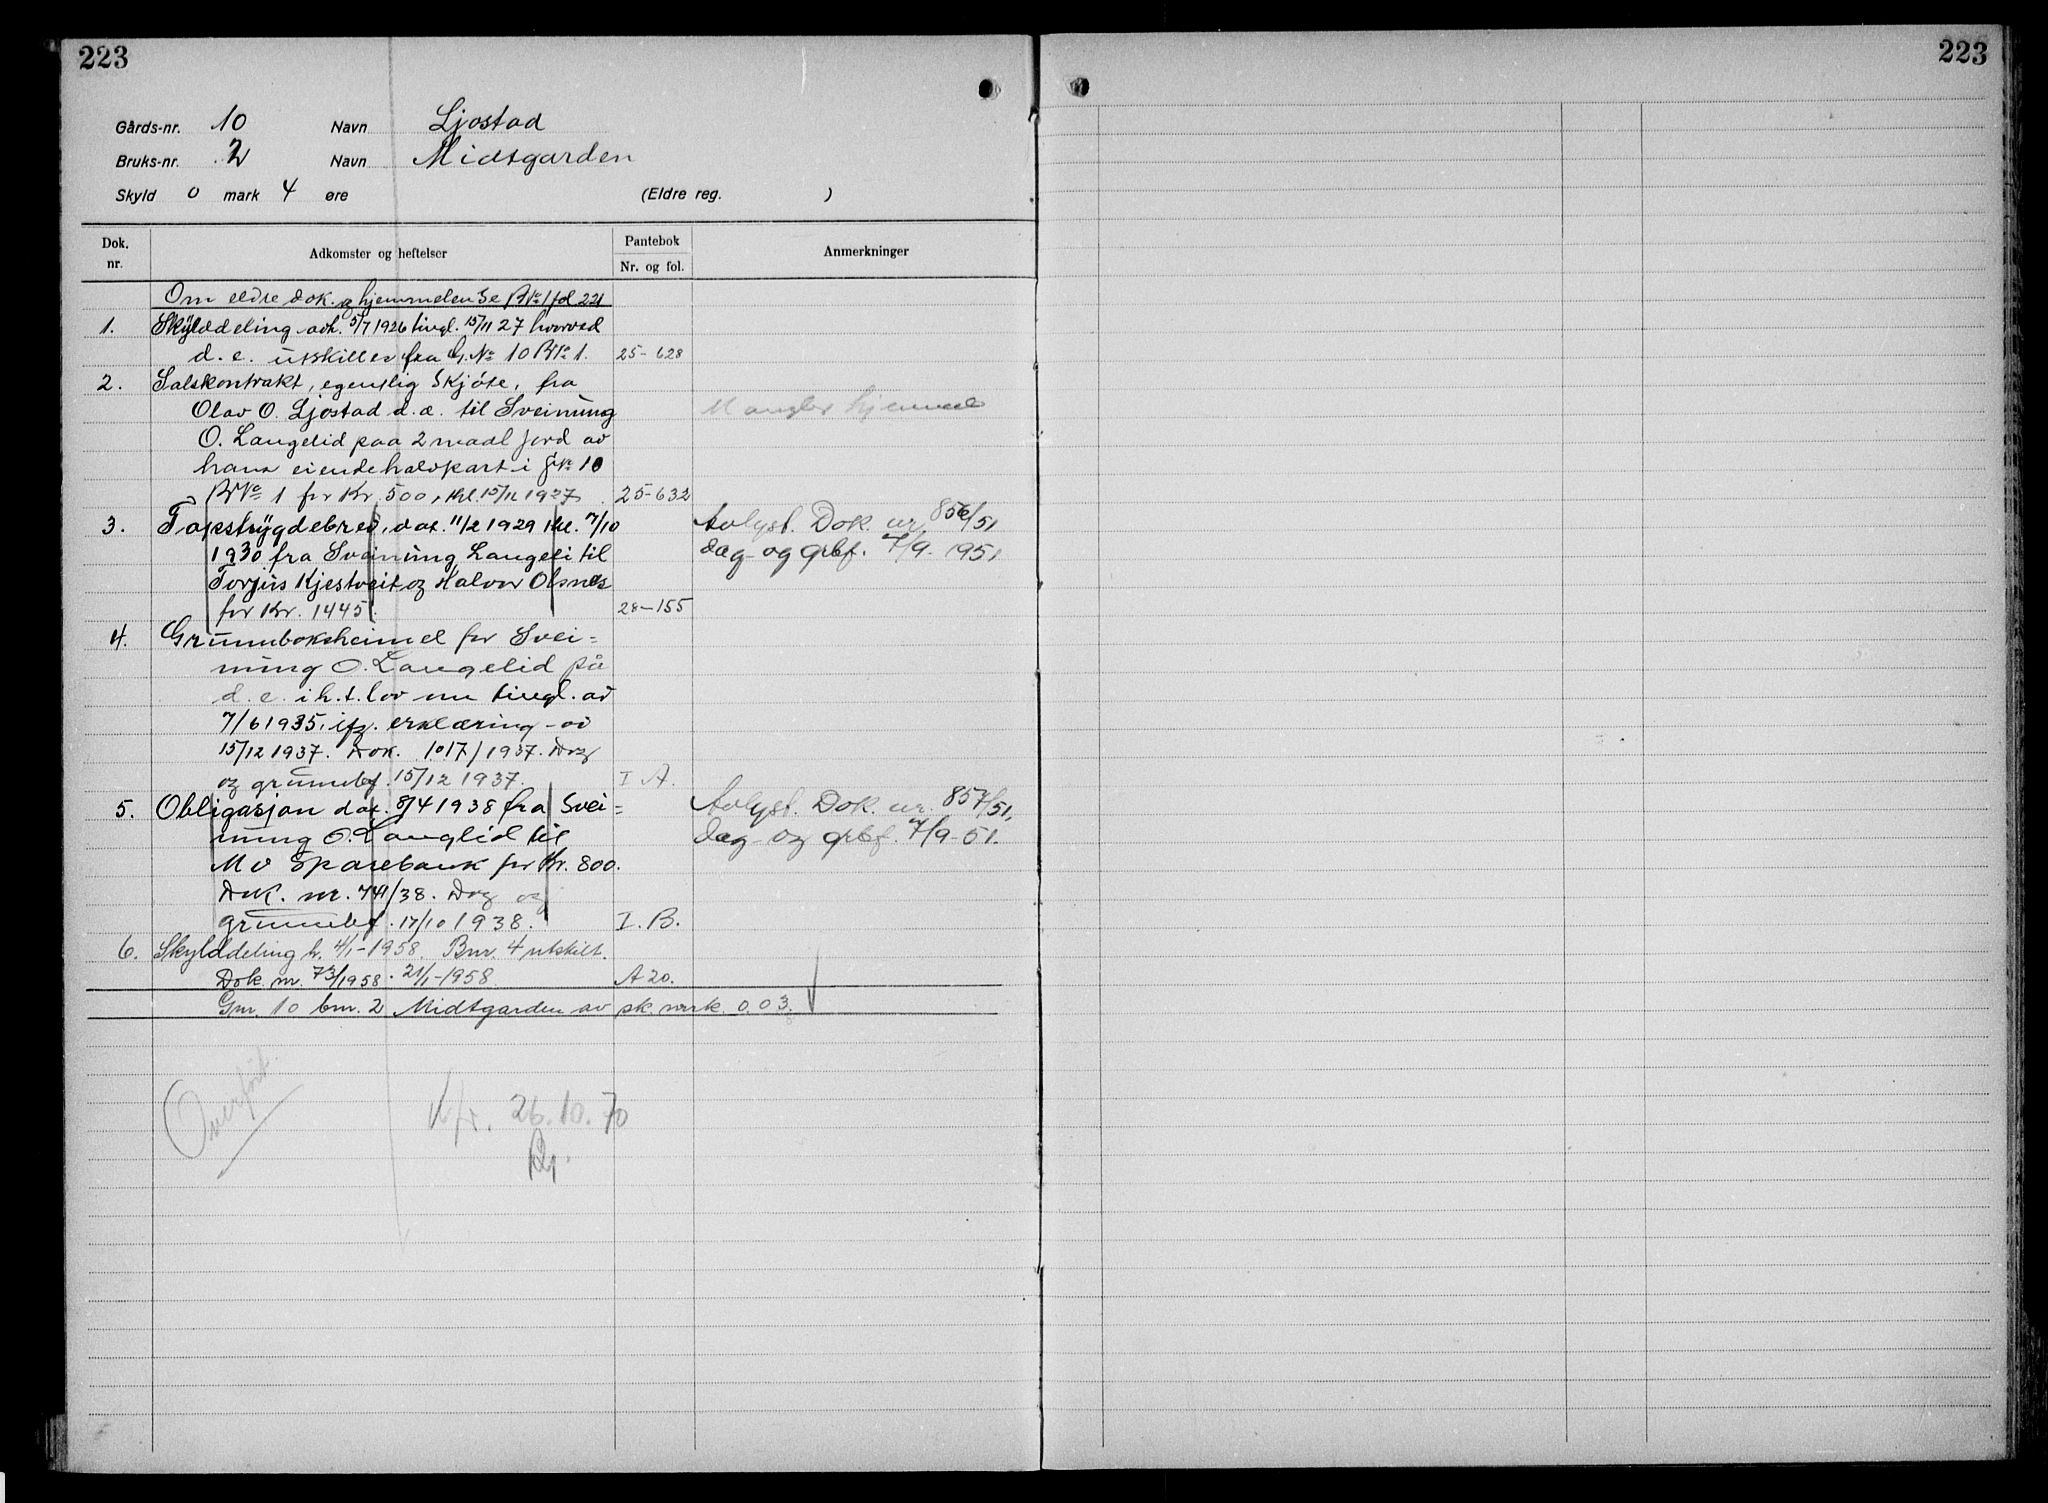 223
223
Gårds-nr. 10 Navn Ljostad
Bruks-nr. 2 Navn Midtgarden
Skyld 0 mark 4 øre (Eldre reg. )
Dok. nr. Adkomster og heftelser Pantebok Nr. og fol. Anmerkninger
Om eldre dok. og hjemmelen se BNo 1 fol 221
1. Skylddeling avh. 5/7 1926 tingl. 15/11 27 hvorved
d. e. utskilles fra G. No 10 BNo 1. 25-628
2. Salskontrakt, egentlig Skjøte, fra
Olav O. Ljostad d. æ. til Sveinung Mangler hjemmel
O. Langelid paa 2 maal jord av
hans eiendehalvpart i GNo 10
BNo 1 for Kr. 500, thl. 15/11 1927 25-632
3. Takstrygdebrev, dat. 11/2 1929 thl. 7/10 Avlyst. Dok. nr. 856/51
1930 fra Sveinung Langeli til dag- og grbf. 7/9. 1951
Torjus Kjestveit og Halvor Olsnes
for Kr. 1445. 28-155
4. Grunnboksheimel for Svei=
nung O. Langelid på
d. e. i h. t. lov um tingl. av
7/6 1935, jfr. erklæring av
15/12 1937. Dok. 1017/1937. Dag
og grunnbf. 15/12 1937. I A.
5. Obligasjon dat. 8/4 1938 fra Svei= Avlyst. Dok. nr. 857/51,
nung O. Langlid til dag- og grbf. 7/9-51.
Mo Sparebank for Kr. 800.
Dok. nr. 741/38. Dag og
grunnbf. 17/10 1938. I. B.
6. Skylddeling h. 4/1-1958. Bnr. 4 utskilt.
Dok. nr. 73/1958. 21/1-1958. A 20.
Gnr. 10 bnr. 2 Midtgarden av sk. mark 0.03.
Overført.
Kfr. 26.10.70